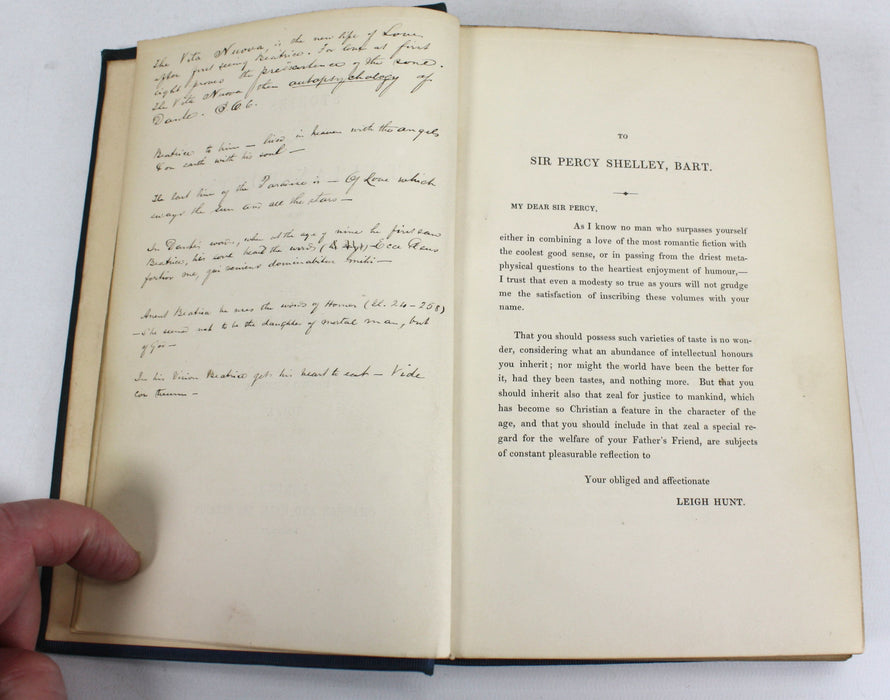 The Vita Nuova, is the new life of Love
after first seeing Beatrice. For love at first
sight proves the preexistence of the
The Vita Nuova the autopsychology of
Dante.
Beatrice to him — lived in heaven with the angels
& on earth with his soul —
The last line of the Paradise is — Of Love which
sways the sun and all the stars —
In Dante's words, when at the age of nine he first saw
Beatrice, his soul heard the words Ecce Deus
fortior me, qui veniens dominabitur mihi —
Anent Beatrice he uses the words of Homer (Il. 24 - 258)
— She seemed not to be the daughter of mortal man, but
of God —
In his Vision Beatrice gets his heart to eat — Vide
TO
SIR PERCY SHELLEY, BART.
MY DEAR SIR PERCY,
As I know no man who surpasses yourself
either in combining a love of the most romantic fiction with
the coolest good sense, or in passing from the driest meta-
physical questions to the heartiest enjoyment of humour,—
I trust that even a modesty so true as yours will not grudge
me the satisfaction of inscribing these volumes with your
name.
That you should possess such varieties of taste is no won-
der, considering what an abundance of intellectual honours
you inherit; nor might the world have been the better for
it, had they been tastes, and nothing more. But that you
should inherit also that zeal for justice to mankind, which
has become so Christian a feature in the character of the
age, and that you should include in that zeal a special re-
gard for the welfare of your Father's Friend, are subjects
of constant pleasurable reflection to
Your obliged and affectionate
LEIGH HUNT.